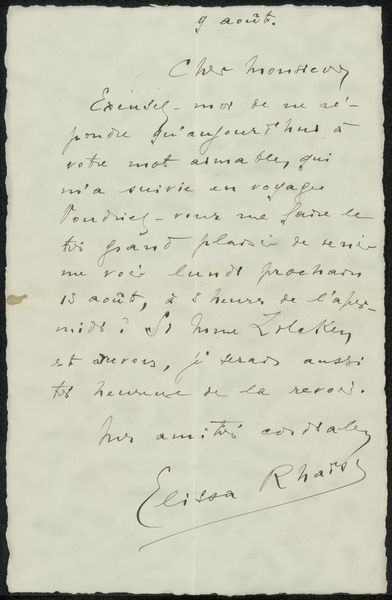 9 août.
Cher Monsieur,
Excusez-moi de ne ré-
pondre qu'aujourd'hui à
votre mot aimable, qui
m'a suivie en voyage.
Voudriez-vous me faire le
très grand plaisir de venir
me voir lundi prochain
13 août, à 3 heures de l'après-
midi ? Si Mme
est avec vous, je serais aussi
très heureuse de la revoir.
Mes amitiés cordiales,
Elissa Rhaïs